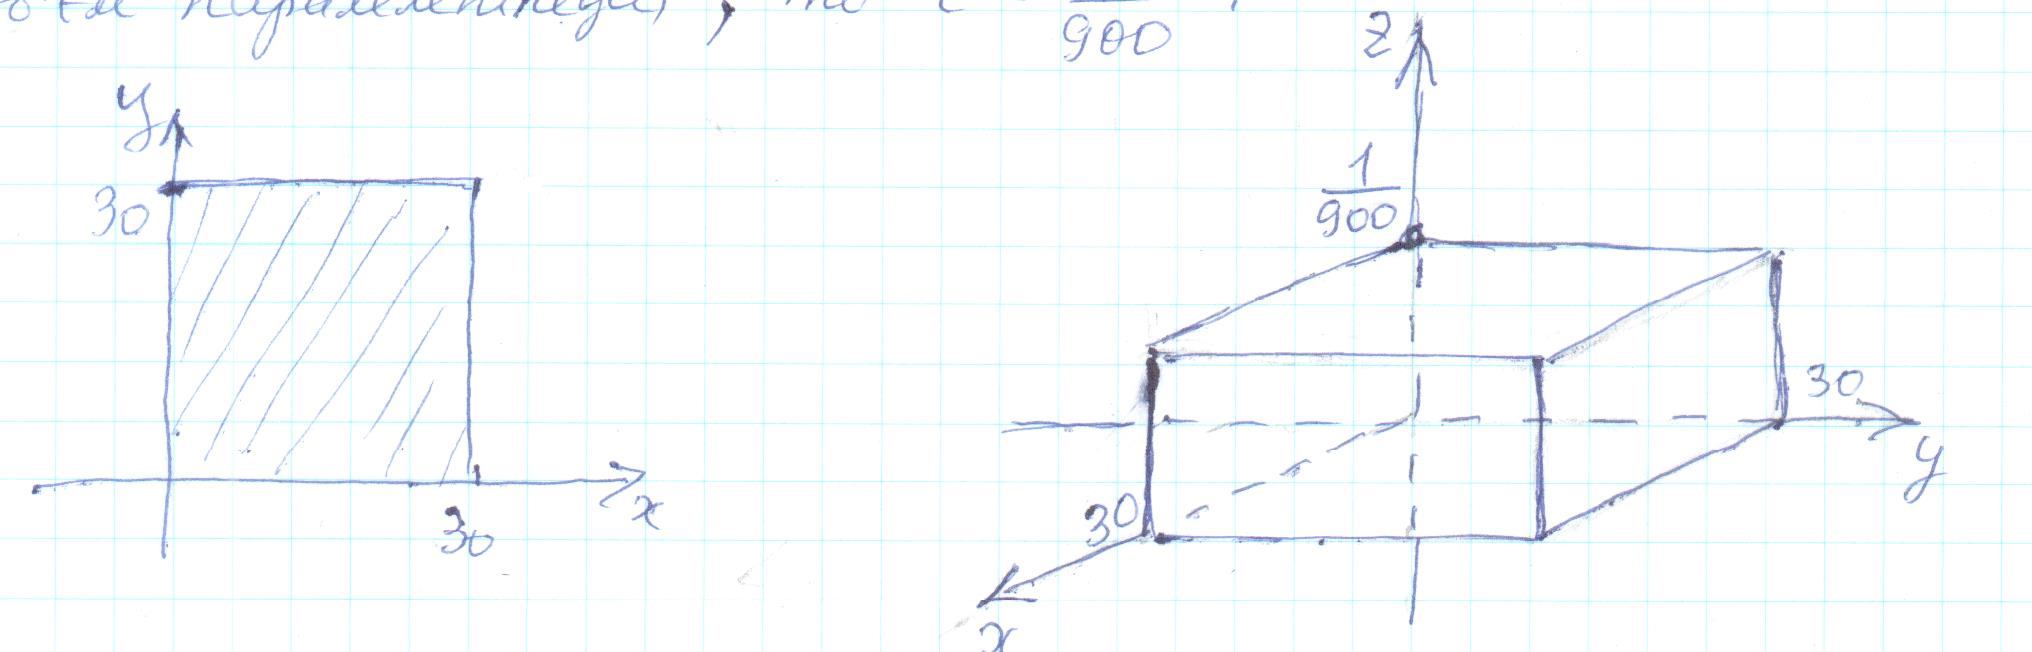 параллелепипед, то c
900
y
30
30
x
z
1
900
30
y
30
x